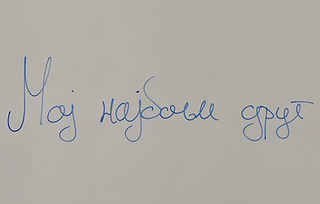 Мој најбољи друг